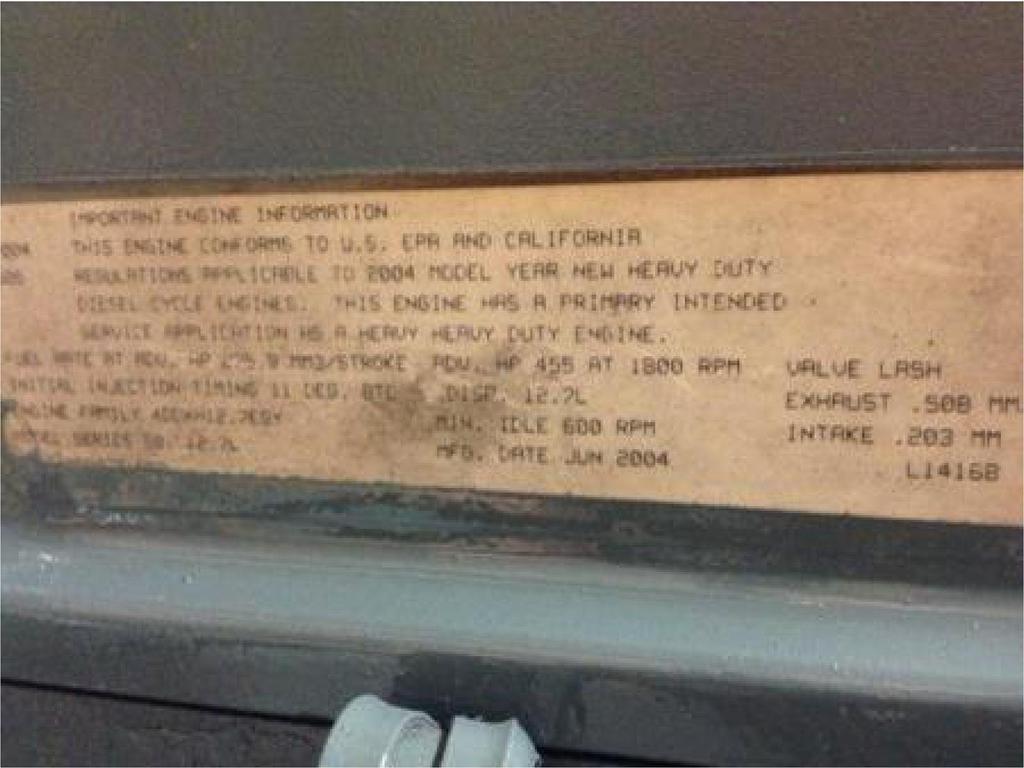 IMPORTANT ENGINE INFORMATION
004 THIS ENGINE CONFORMS TO U.S. EPA AND CALIFORNIA
REGULATIONS APPLICABLE TO 2004 MODEL YEAR NEW HEAVY DUTY
DIESEL CYCLE ENGINES. THIS ENGINE HAS A PRIMARY INTENDED
SERVICE APPLICATION AS A HEAVY HEAVY DUTY ENGINE.
FUEL RATE AT ADV. HP MM3/STROKE ADV. HP 455 AT 1800 RPM VALVE LASH
INITIAL INJECTION TIMING 11 DEG. BTC DISP. 12.7L EXHAUST .508 MM
ENGINE FAMILY MIN. IDLE 600 RPM INTAKE .203 MM
MODEL SERIES 60, 12.7L MFG. DATE JUN 2004 L1416B